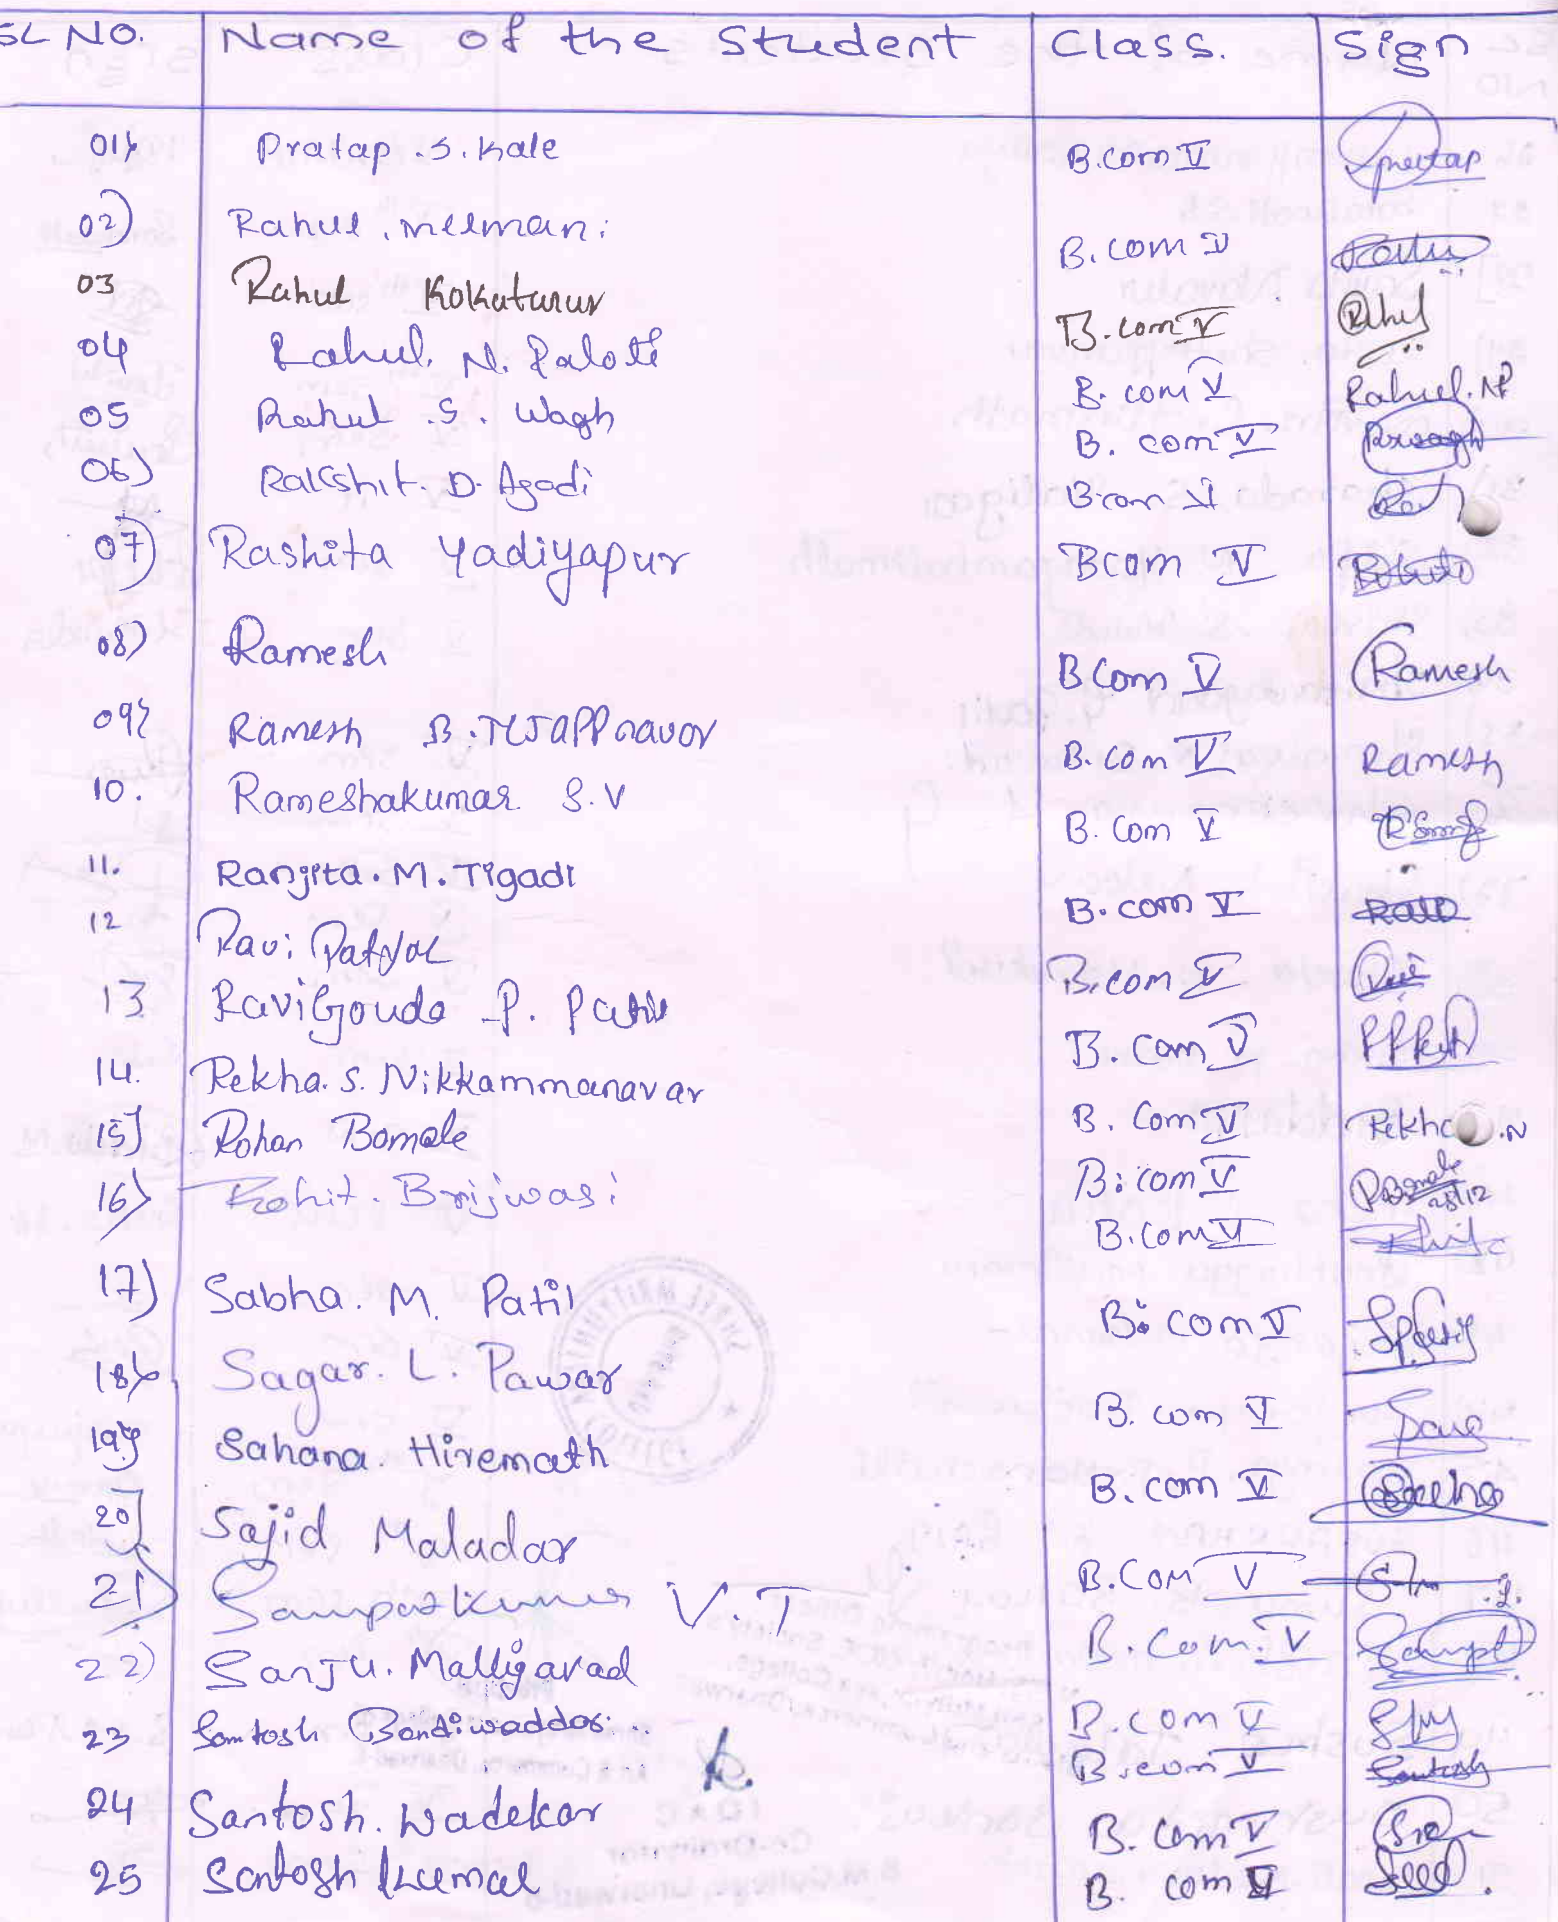 SL NO. Name of the Student Class. Sign
01) Pratap .S. Kale B.com V Spratap
02) Rahul .neelmani B.com V
03 Rahul Kokatanur B.com V Rahul
04 Rahul. N. Paloti B. com V Rahul.NP
05 Rahul .S. Wagh B. com V Rswagh
06) Rakshit. D. Agadi B.com V
07) Rashita Yadiyapur Bcom V
08) Ramesh BCom V Ramesh
09) Ramesh B. B.com V Ramesh
10. Rameshakumar S.V B. Com V
11. Ranjita. M. Tigadi B. com V
12 Ravi B.com V Ravi
13 RaviGouda P. Patil B. Com V
14. Rekha. S. Nikkammanavar B. Com V Rekha .N
15) Rohan Bomale B. com V RBomale
28/12
16) Rohit. Brijwasi B.com V
17) Sabha. M. Patil B. com V
18) Sagar. L. Pawar B. com V
19) Sahana. Hiremath B. com V
20) Sajid Maladar B.Com V
21) Sampatkumar V.T B. Com. V Sampt
22) Sanju. Malligavad B. com V
23 Santosh Bandiwaddar B.com V Santosh
24 Santosh. Wadekar B. Com V
25 Santosh Kumar B. com V